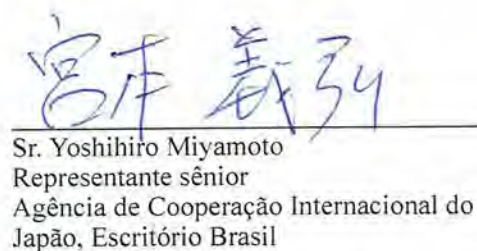 宮本 義弘
Sr. Yoshihiro Miyamoto
Representante sênior
Agência de Cooperação Internacional do
Japão, Escritório Brasil